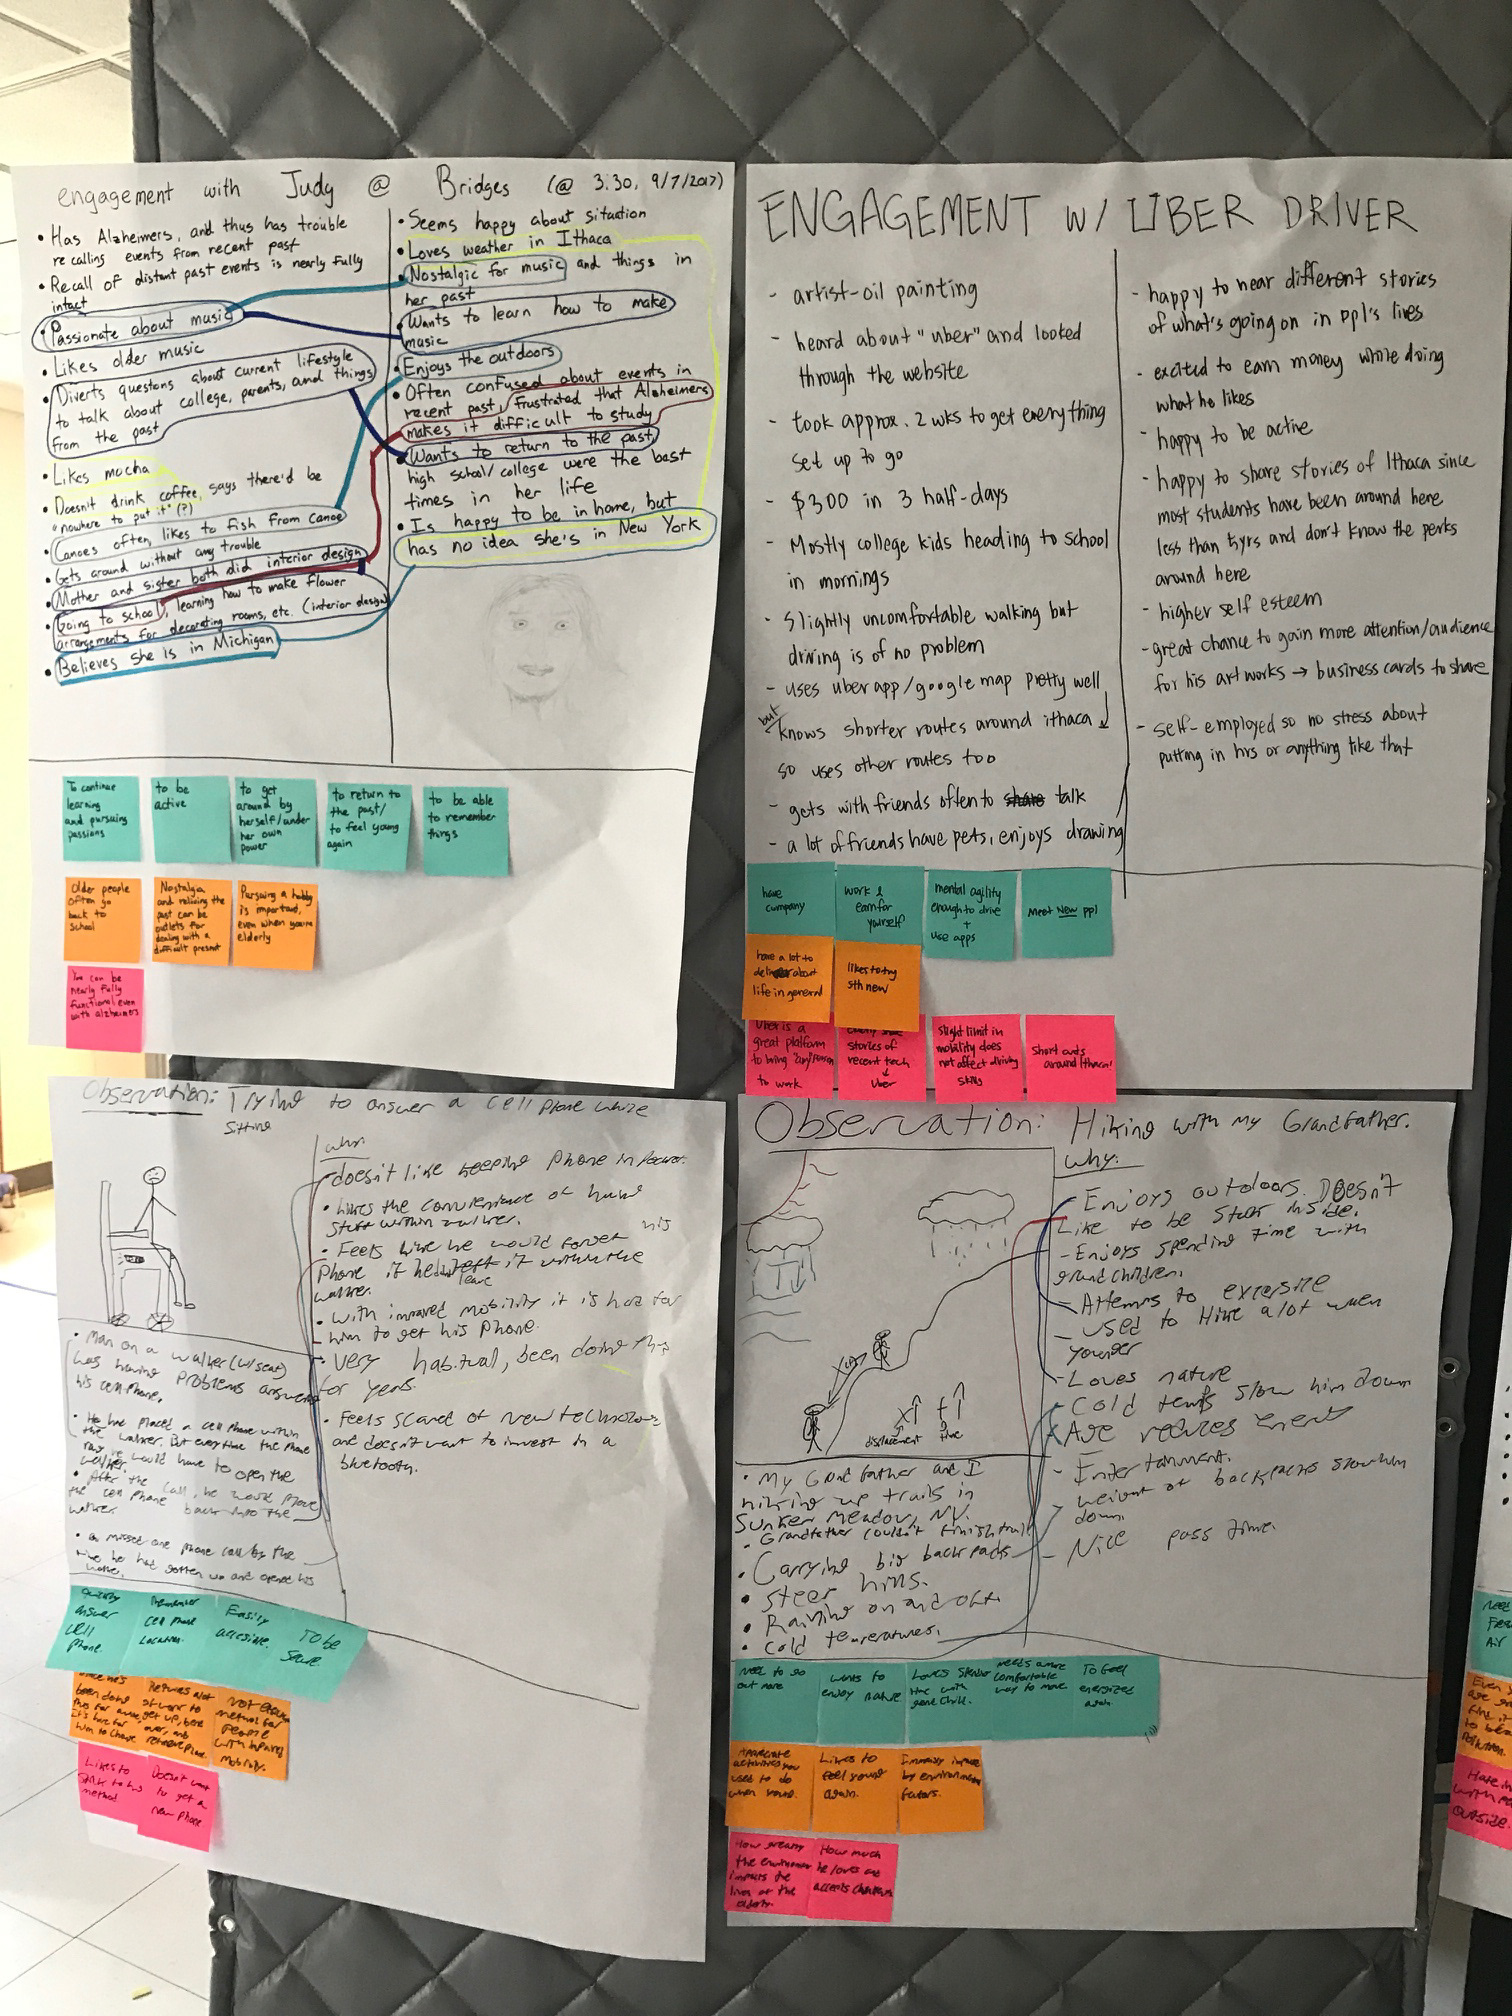 engagement with Judy @ Bridges (@ 3:30, 9/7/2017)
• Has Alzheimers, and thus has trouble
recalling events from recent past
• Recall of distant past events is nearly fully
intact
• Passionate about music
• Likes older music
• Diverts questions about current lifestyle
to talk about college, parents, and things
from the past
• Likes mocha
• Doesn't drink coffee, says there'd be
"nowhere to put it" (?)
• Canoes often, likes to fish from canoe
• Gets around without any trouble
• Mother and sister both did interior design
• Going to school, learning how to make flower
arrangements for decorating rooms, etc. (interior design)
• Believes she is in Michigan
• Seems happy about situation
• Loves weather in Ithaca
• Nostalgic for music and things in
her past
• Wants to learn how to make
music
• Enjoys the outdoors
• Often confused about events in
recent past, frustrated that Alzheimers
makes it difficult to study
• Wants to return to the past,
high school/college were the best
times in her life
• Is happy to be in home, but
has no idea she's in New York
To continue
learning
and pursuing
passions
to be
active
to get
around by
herself/under
her own
power
to return to
the past/
to feel young
again
to be able
to remember
things
Older people
often go
back to
school
Nostalgia
and reliving the
past can be
outlets for
dealing with a
difficult present
Pursuing a hobby
is important,
even when you're
elderly
You can be
nearly fully
functional even
with alzheimers
ENGAGEMENT W/ UBER DRIVER
- artist-oil painting
- heard about "uber" and looked
through the website
- took approx. 2 wks to get everything
set up to go
- $300 in 3 half-days
- Mostly college kids heading to school
in mornings
- slightly uncomfortable walking but
driving is of no problem
- uses uber app/google map pretty well
but knows shorter routes around ithaca
so uses other routes too
- gets with friends often to share talk
- a lot of friends have pets, enjoys drawing
- happy to hear different stories
of what's going on in ppl's lives
- excited to earn money while doing
what he likes
- happy to be active
- happy to share stories of Ithaca since
most students have been around here
less than 5yrs and don't know the perks
around here
- higher self esteem
- great chance to gain more attention/audience
for his art works → business cards to share
- self-employed so no stress about
putting in hrs or anything like that
have
company
work &
earn for
yourself
mental agility
enough to drive
+
use apps
meet NEW ppl
have a lot to
about
life in general
likes to try
sth new
Uber is a
great platform
to bring "any" person
to work
stories of
recent tech
↓
Uber
slight limit in
mobility does
not affect driving
skills
short cuts
around Ithaca!
Observation: Trying to answer a cell phone while
sitting
why:
- doesn't like keeping phone in pocket.
• Likes the convenience of having
stuff within walker.
• Feels like he would forget his
phone if he left leave it within the
walker.
- with impaired mobility it is hard for
him to get his phone.
• Very habitual, been doing this
for years.
• Feels scared of new technology
and doesn't want to invest in a
bluetooth.
• Man on a walker (w/seat)
was having problems answering
his cell phone.
• He had placed a cell phone within
the walker. But everytime the phone
rang he would have to open the
walker.
• After the call, he would place
the cell phone back into the
walker.
• missed one phone call by the
time he had gotten up and opened his
Quickly
answer
cell
phone.
Remember
cell phone
location.
Easily
accesible.
To be
Since he's
been doing
this for
it's hard for
him to change
Requires a lot
of work to
get up, bend
over, and
retrieve phone
Not
method for
people
with impaired
mobility.
Likes to
stick to his
method
Doesn't want
to get a
new phone
Observation: Hiking with my Grandfather.
why:
- Enjoys outdoors. Doesn't
like to be stuck inside.
- Enjoys spending time with
grandchildren.
- Attempts to excersise
- used to Hike a lot when
younger
- Loves nature
- Cold temps slow him down
- Age reduces energy
- Entertainment.
- weight of backpacks slow him
down.
- Nice pass time.
x↑ t↑
displacement time
• My Grandfather and I
hiking up trails in
Sunken Meadow, NY.
• Grandfather couldn't finish trail
• Carrying big backpacks
• Steep hills.
• Raining on and off.
• Cold temperatures.
Need to go
out more
wants to
enjoy nature
Loves spending
time with
grand child.
needs a more
comfortable
way to move
To feel
energized
again
Appreciate
activities you
used to do
when young.
Likes to
feel young
again.
by environmental
factors.
How greatly
the environment
impacts the
lives of the
elderly.
How much
he loves and
accepts
Need
Fres
Air
Even
age
to be
Hate
with
outside.